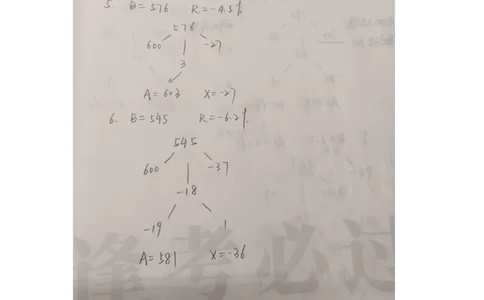 5. B=576 R=-4.5%
576
600 -27
3
A=603 X=-27
6. B=545 R=-6.2%
545
600 -37
-18
-19 1
A=581 X=-36
锋考必过